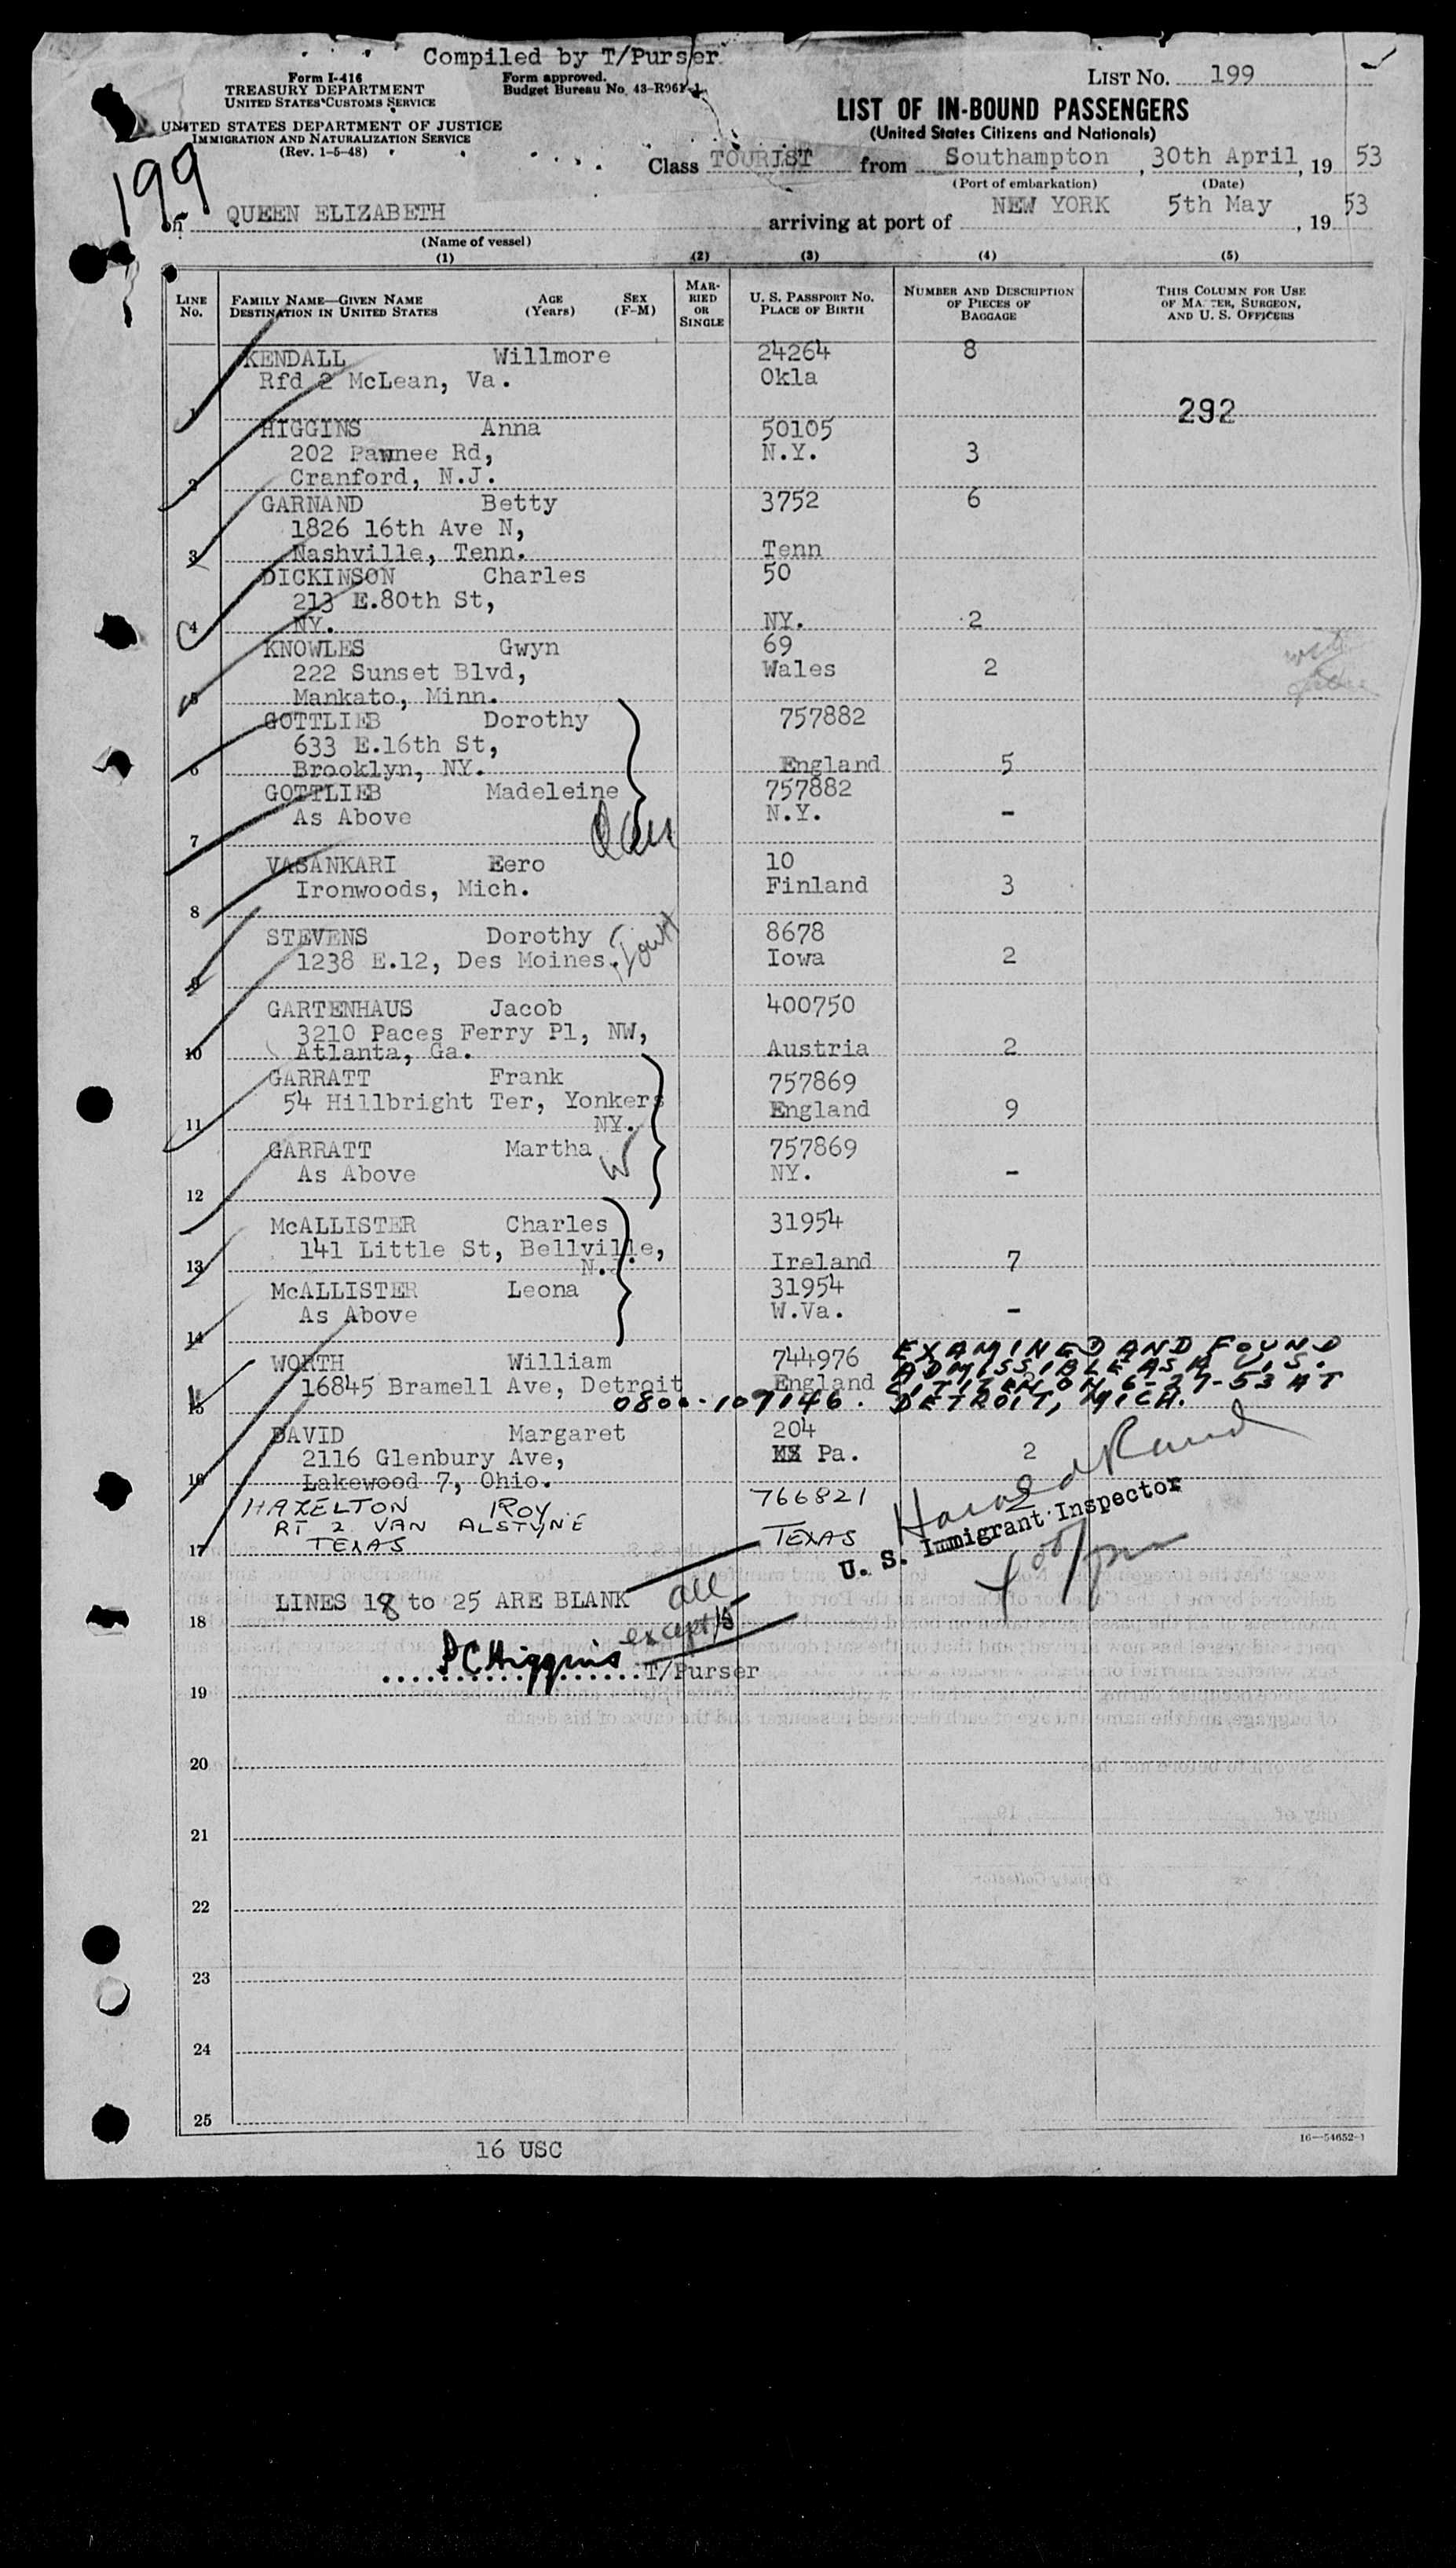 Compiled by T/Purser
Form I-416
TREASURY DEPARTMENT
UNITED STATES CUSTOMS SERVICE
UNITED STATES DEPARTMENT OF JUSTICE
IMMIGRATION AND NATURALIZATION SERVICE
(Rev. 1-5-48)
Form approved.
Budget Bureau No. 43-R061-1
LIST No. 199
LIST OF IN-BOUND PASSENGERS
(United States Citizens and Nationals)
199
Class TOURIST from Southampton, 30th April, 19 53
(Port of embarkation) (Date)
on QUEEN ELIZABETH arriving at port of NEW YORK 5th May, 19 53
(Name of vessel)
(1) (2) (3) (4) (5)
LINE No.
FAMILY NAME—GIVEN NAME
DESTINATION IN UNITED STATES
AGE (Years)
SEX (F-M)
MARRIED OR SINGLE
U. S. PASSPORT NO.
PLACE OF BIRTH
NUMBER AND DESCRIPTION OF PIECES OF BAGGAGE
THIS COLUMN FOR USE OF MASTER, SURGEON, AND U. S. OFFICERS
KENDALL Willmore 24264 8
Rfd 2 McLean, Va. Okla
1 292
HIGGINS Anna 50105
202 Pawnee Rd, N.Y. 3
2 Cranford, N.J.
GARNAND Betty 3752 6
1826 16th Ave N,
3 Nashville, Tenn. Tenn
DICKINSON Charles 50
213 E.80th St,
4 NY. NY. 2
KNOWLES Gwyn 69
222 Sunset Blvd, Wales 2
5 Mankato, Minn.
GOTTLIEB Dorothy 757882
633 E.16th St,
6 Brooklyn, NY. England 5
GOTTLIEB Madeleine 757882
As Above N.Y. -
7
VASANKARI Eero 10
Ironwoods, Mich. Finland 3
8
STEVENS Dorothy 8678
1238 E.12, Des Moines. Iowa 2
9
GARTENHAUS Jacob 400750
3210 Paces Ferry Pl, NW,
10 Atlanta, Ga. Austria 2
GARRATT Frank 757869
54 Hillbright Ter, Yonkers England 9
11 NY.
GARRATT Martha W 757869
As Above NY. -
12
McALLISTER Charles 31954
141 Little St, Bellville,
13 N.J. Ireland 7
McALLISTER Leona 31954
As Above W.Va. -
14
WORTH William 744976 EXAMINED AND FOUND
ADMISSIBLE AS A U.S.
16845 Bramell Ave, Detroit England CITIZEN ON 6-27-53 AT
15 0800-107146. DETROIT, MICH.
DAVID Margaret 204
2116 Glenbury Ave, Pa. 2
16 Lakewood 7, Ohio.
HAZELTON ROY 766821 2
RT 2 VAN ALSTYNE
17 TEXAS TEXAS
Harold Rand
U. S. Immigrant Inspector
LINES 18 to 25 ARE BLANK
all
except 15
18
P C Higgins T/Purser
19
20
21
22
23
24
25
16 USC
16—54652-1